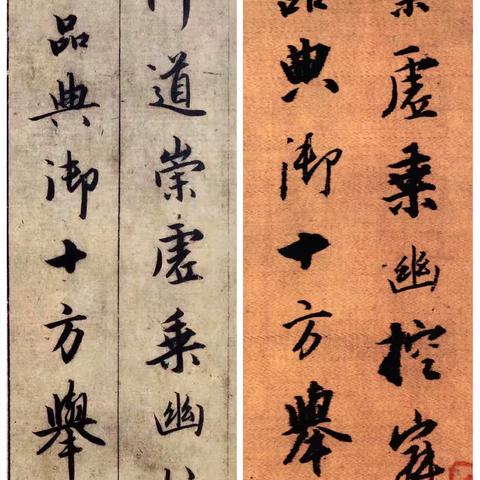 道崇虛乘幽
品典御十方舉
虛乘幽控寂
品典御十方舉